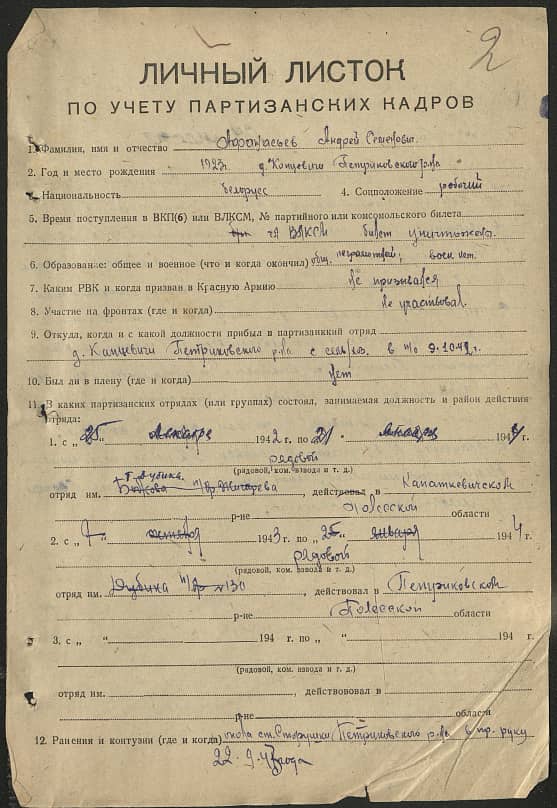 2
ЛИЧНЫЙ ЛИСТОК
ПО УЧЕТУ ПАРТИЗАНСКИХ КАДРОВ
1. Фамилия, имя и отчество Афанасьев Андрей Семенович
2. Год и место рождения 1923г. д. Копцевичи Петриковского р-на
3. Национальность белорусс 4. Соцположение рабочий
5. Время поступления в ВКП(б) или ВЛКСМ, № партийного или комсомольского билета
чл ВЛКСМ билет уничтожен.
6. Образование: общее и военное (что и когда окончил) общ. воен. нет.
7. Каким РВК и когда призван в Красную Армию не призывался
8. Участие на фронтах (где и когда) не участвовал.
9. Откуда, когда и с какой должности прибыл в партизанский отряд
д. Капцевичи Петриковского р-на с в п/о 9.10.42г.
10. Был ли в плену (где и когда) нет
11. В каких партизанских отрядах (или группах) состоял, занимаемая должность и район действия
отряда:
1. с „25" 1942 г. по „21" 1944
рядовой
(рядовой, ком. взвода и т. д.)
отряд им. , действовал в Капаткевичском
р-не Полесской области
2. с „ " 1943 г. по „25" января 1944 г.
рядовой
(рядовой, ком. взвода и т. д.)
отряд им. п/бр №130 , действовал в Петриковском
р-не Полесской области
3. с „ " 194 г. по „ " 194 г.
(рядовой, ком. взвода и т. д.)
отряд им. , действовал в
р-не области
12. Ранения и контузии (где и когда) ст. Старушки Петриковского р-на в пр. руку
22.9.43 года